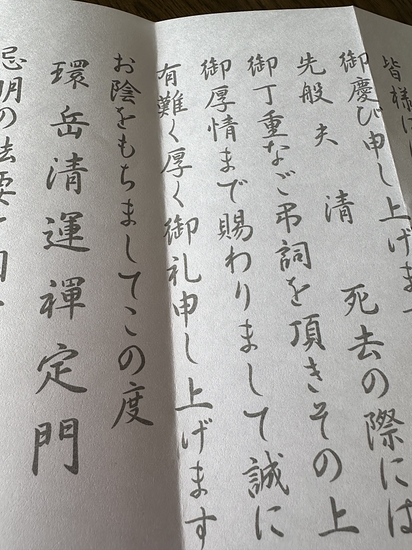 皆様に
は
御慶び申し上げま
先般 夫 清 死去の際には
御丁重なご弔詞を頂きその上
御厚情まで賜わりまして誠に
有難く厚く御礼申し上げます
お陰をもちましてこの度
環岳清運禅定門
忌明の法要を